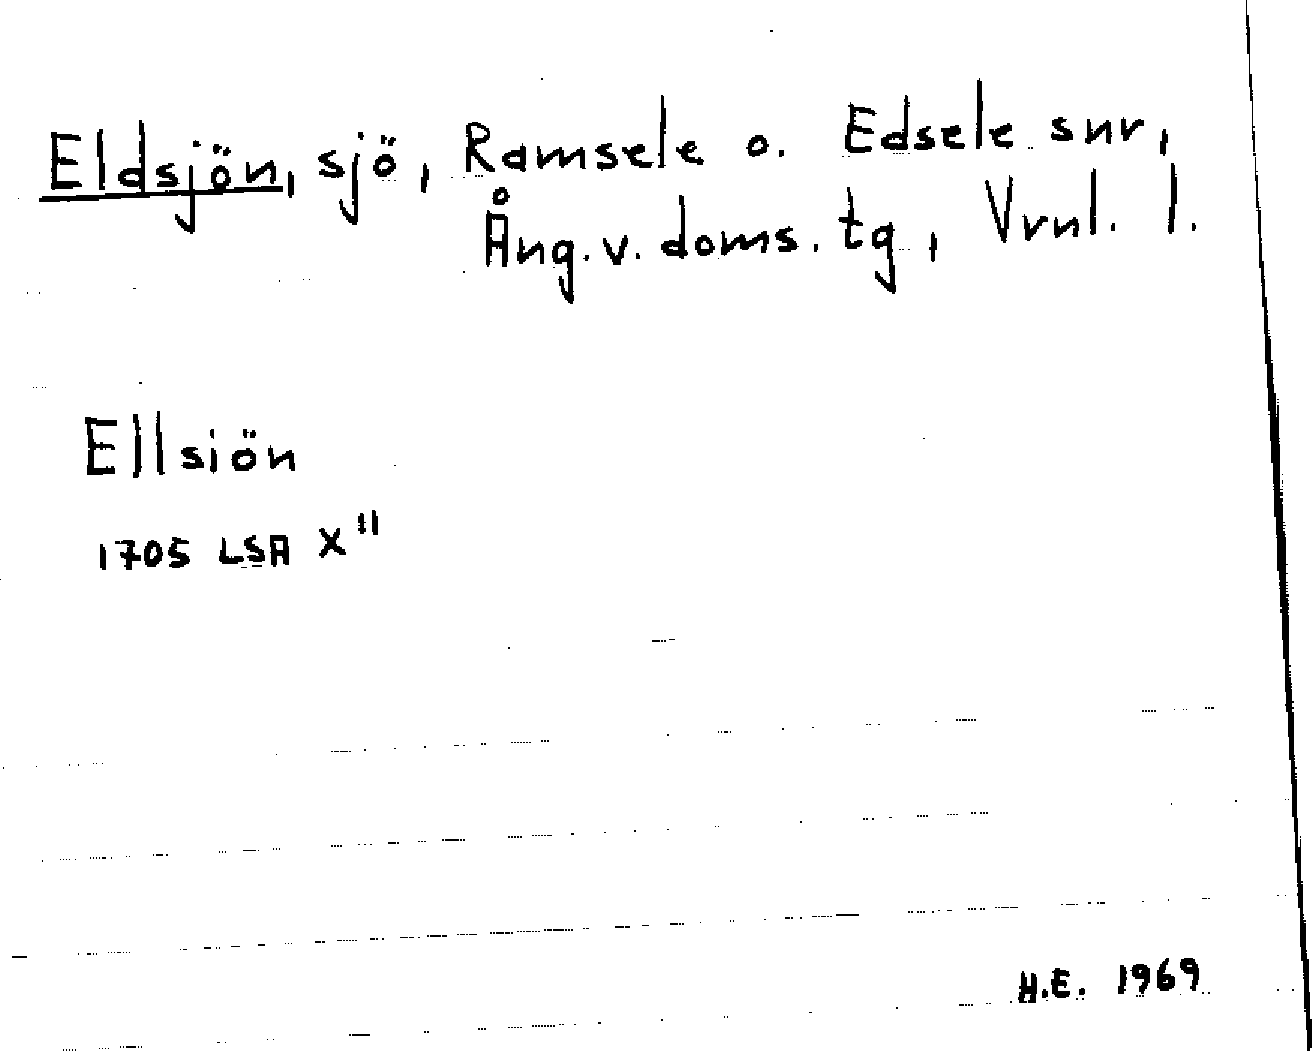 Eldsjön, sjö, Ramsele o. Edsele snr,
Ång. v. doms. tg, Vrnl. l.
Ellsiön
1705 LSA X"
H.E. 1969